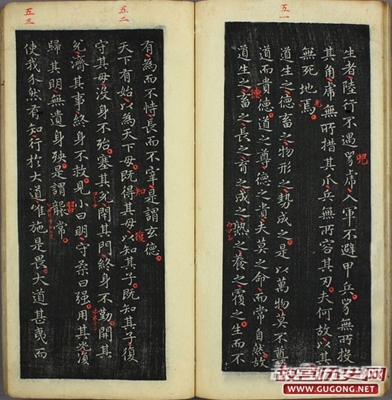 五一
生者陸行不遇兕虎入軍不避甲兵兕無所投
其角虎無所措其爪兵無所容其刃夫何故以其
無死地焉
道生之德畜之物形之勢成之是以萬物莫不尊
道而貴德道之尊德之貴夫莫之命而常自然故
道生之畜之長之育之成之熟之養之覆之生而不
五二
五三
有為而不恃長而不宰是謂玄德
天下有始以為天下母既得其母以知其子既知其子復
守其母沒身不殆塞其兌閉其門終身不勤開其
兌濟其事終身不救見小曰明守柔曰強用其光復
歸其明無遺身殃是謂襲常
使我介然有知行於大道唯施是畏大道甚夷而
WWW.GUGONG.NET